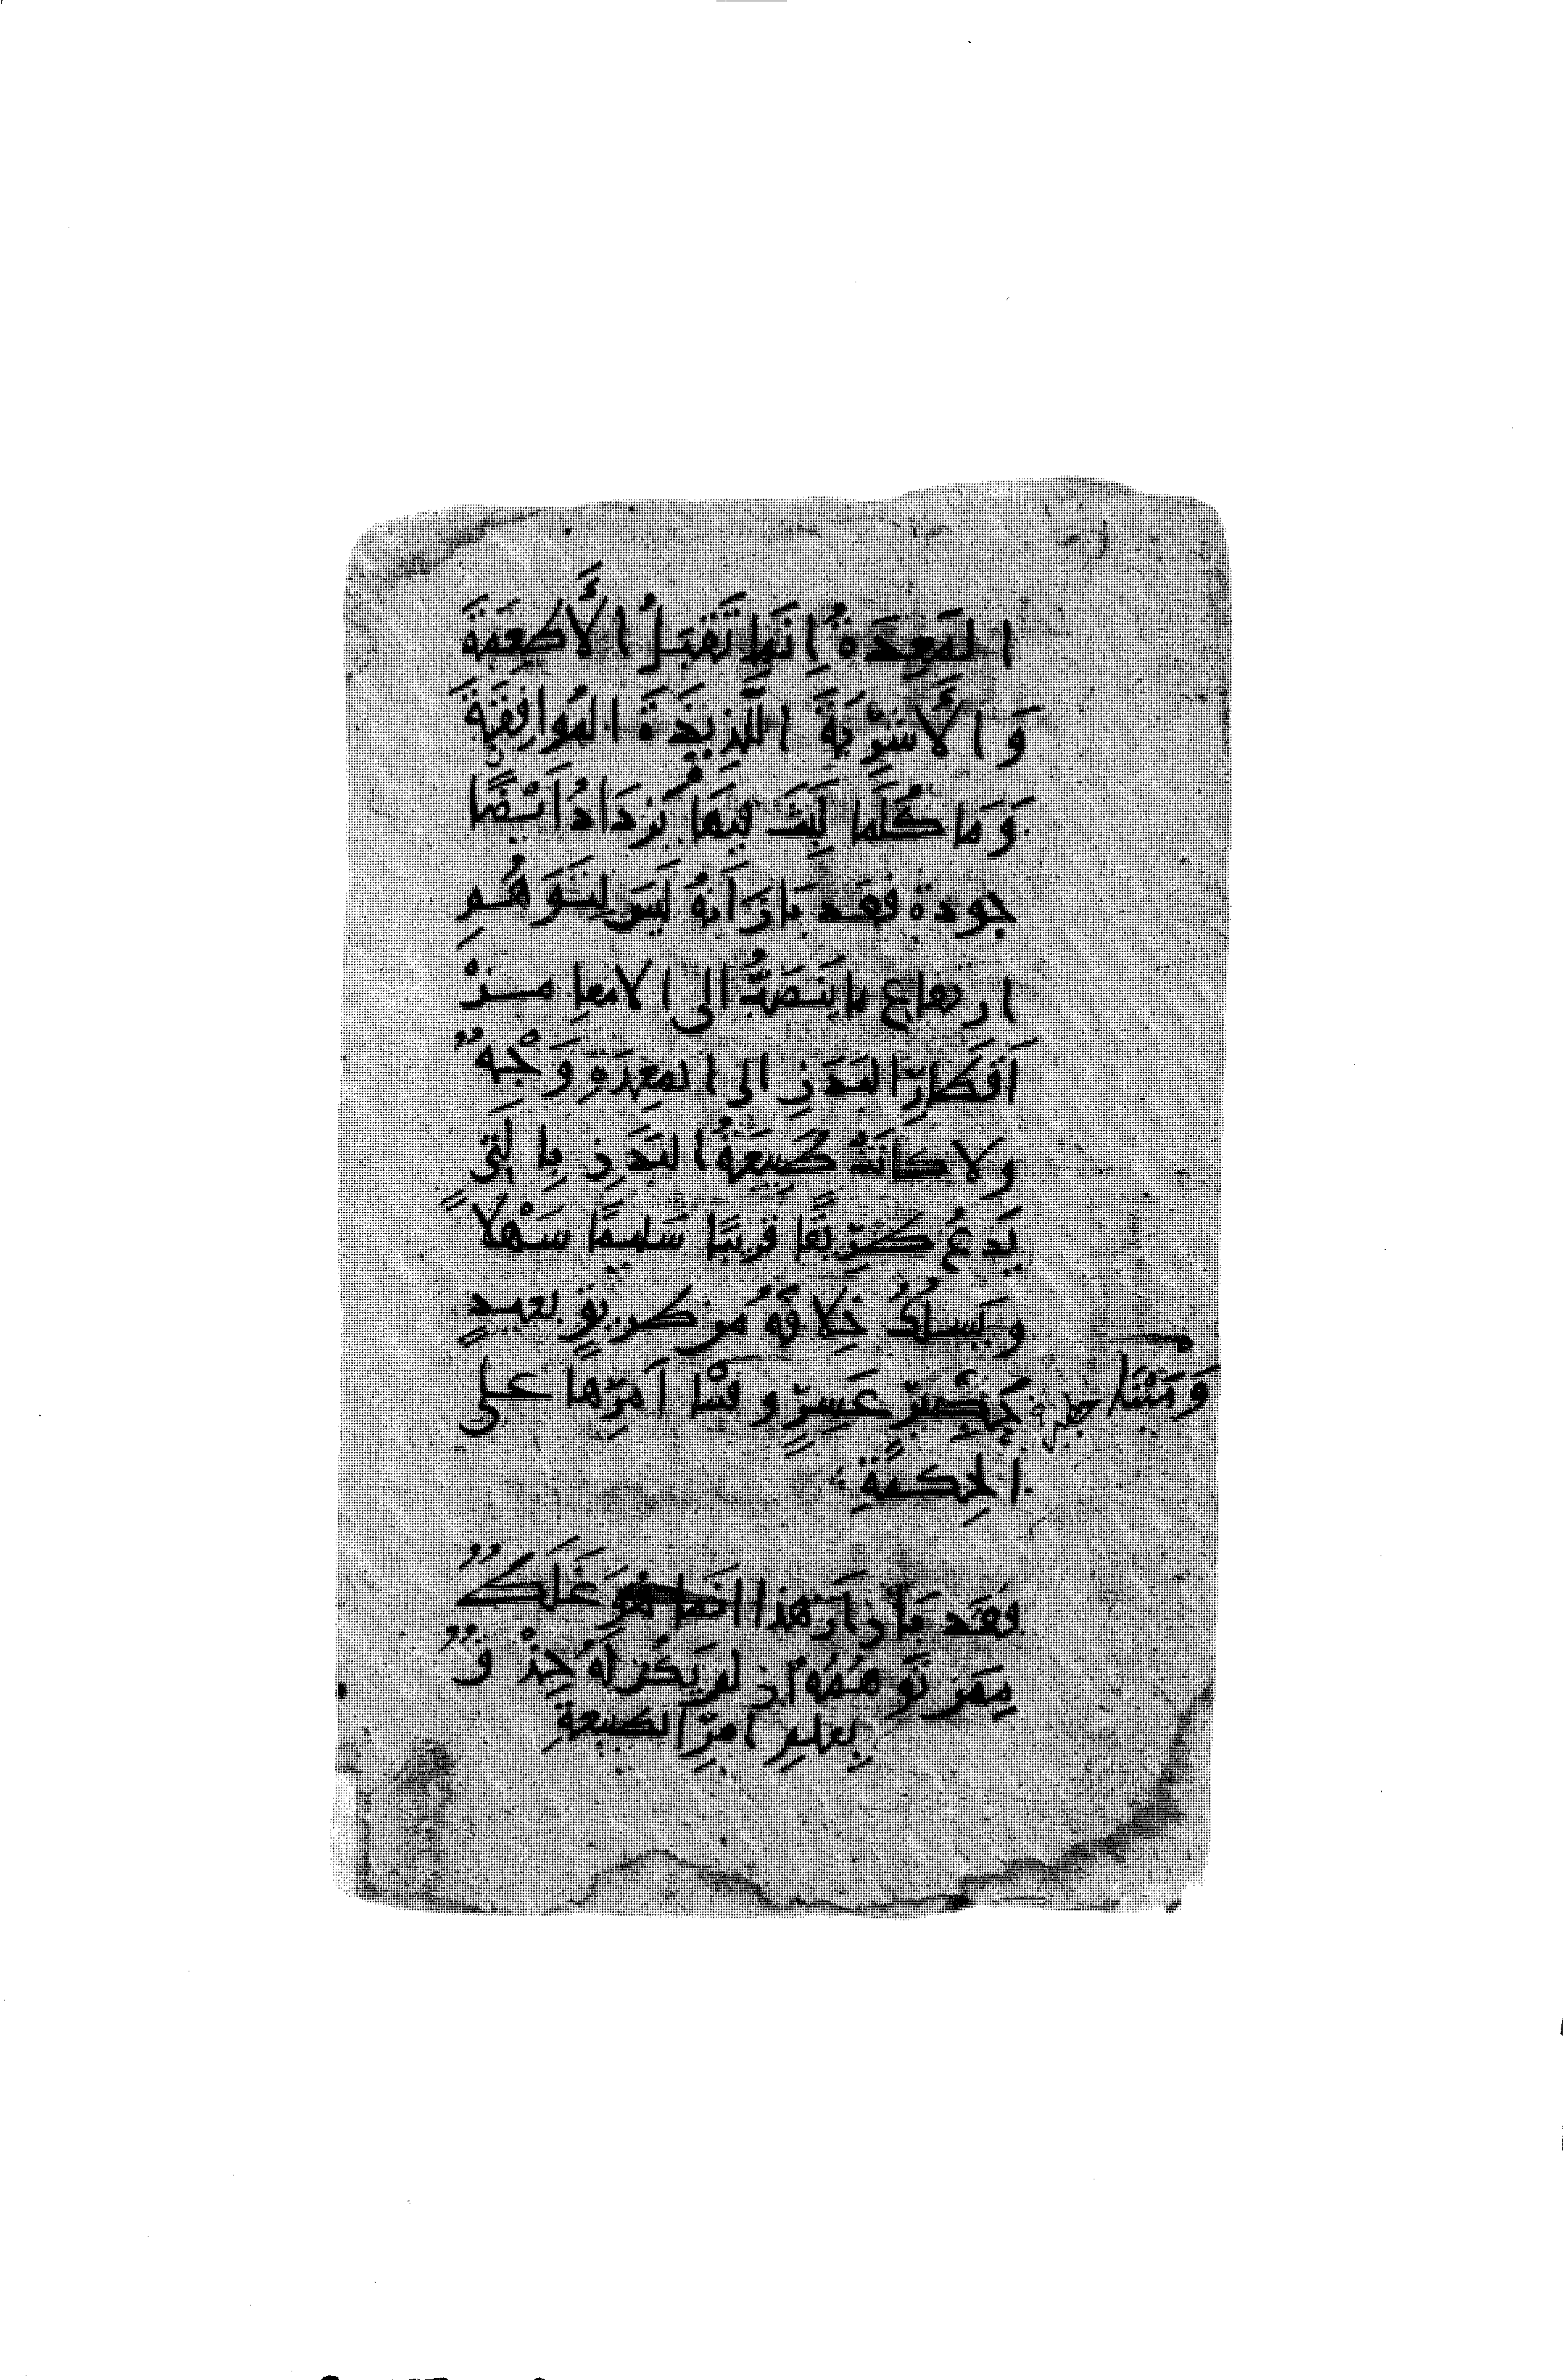 المَعِدَةُ اِنَّها تَقبَلُ الأَطعِمَةَ
وَالأَشْرِبَةَ اللَّذِيذَةَ المُوافِقَةَ
وَمَا كُلَّمَا لَبَثَ فيهَا يَزدَادُ اَيْضًا
جودة فقد بَانَ اَنهُ لَيسَ لِتَوَهُّمِ
ارتفاعِ ما يَنصَبُّ الى الامعاءِ مِنْ
اَقطَارِ البَدَنِ الى المَعِدَةِ وَجْهٌ
ولا كانَتْ طَبِيعَةُ البَدَنِ بِالَّتِي
يَدعُ طَرِيقًا قريبًا سَليمًا سَهْلاً
ويَسلُكُ خِلافَهُ مِن طريقٍ بعيدٍ
خَطِرٍ عَسِرٍ وقيْنا اَمرِهَا على
وَمَبْنَا
الحِكمَةِ
فَقَد بَانَ اَنَّ هذا انمَا هُوَ غَلَطٌ
مِمَّن تَوَهَّمَهُ اذ لم يَكُن لَهُ حِذْقٌ
بِعلمِ امرِ الطبيعةِ